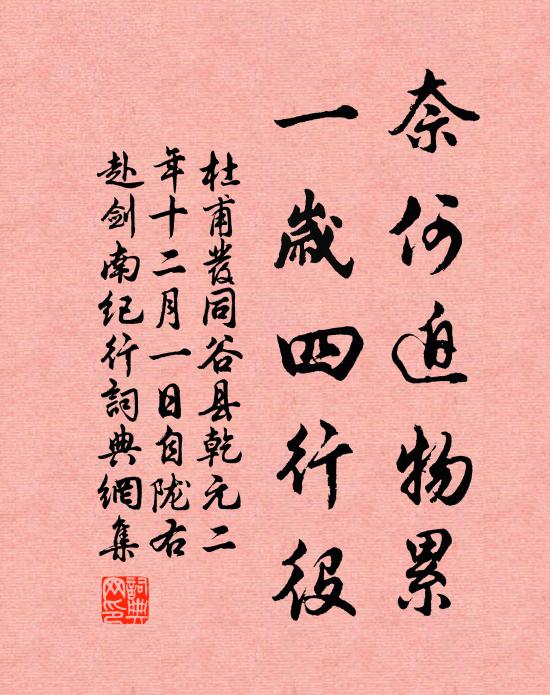 奈何迫物累
一歲四行役
杜甫發同谷县乾元二
年十二月一日自陇右
赴剑南纪行詞典網集
詞典
网印